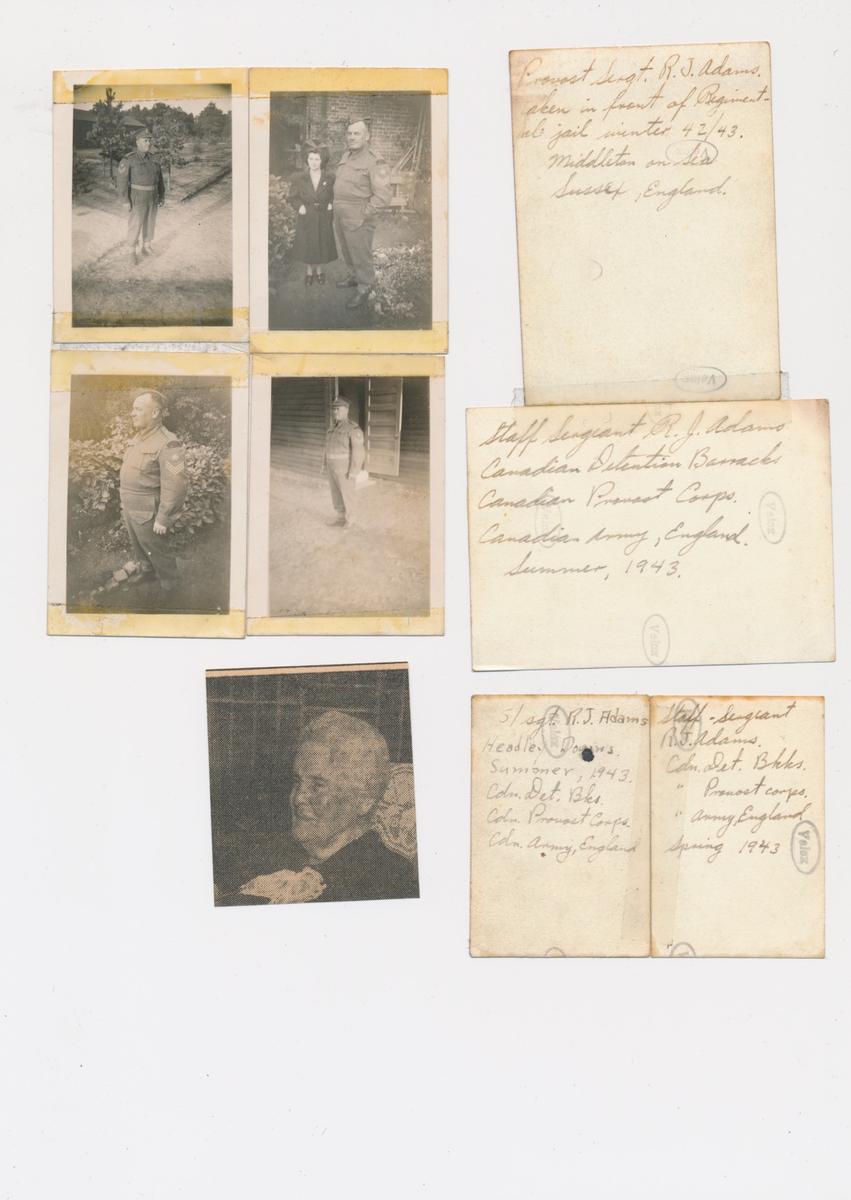 Provost Sergt. R. J. Adams.
aken in front of Regiment-
al jail winter 42/43.
Middleton on Sea
Sussex, England.
Velox
Staff Sergeant R. J. Adams
Canadian Detention Barracks
Canadian Provost Corps.
Canadian Army, England.
Summer, 1943.
Velox
Velox
Velox
S/sgt. R.J. Adams
Headley Downs.
Summer, 1943.
Cdn. Det. Bks.
Cdn. Provost Corps.
Cdn. Army, England
Velox
Staff-Sergeant
R.J. Adams.
Cdn. Det. Bkks.
" Provost corps.
" Army, England
Spring 1943
Velox